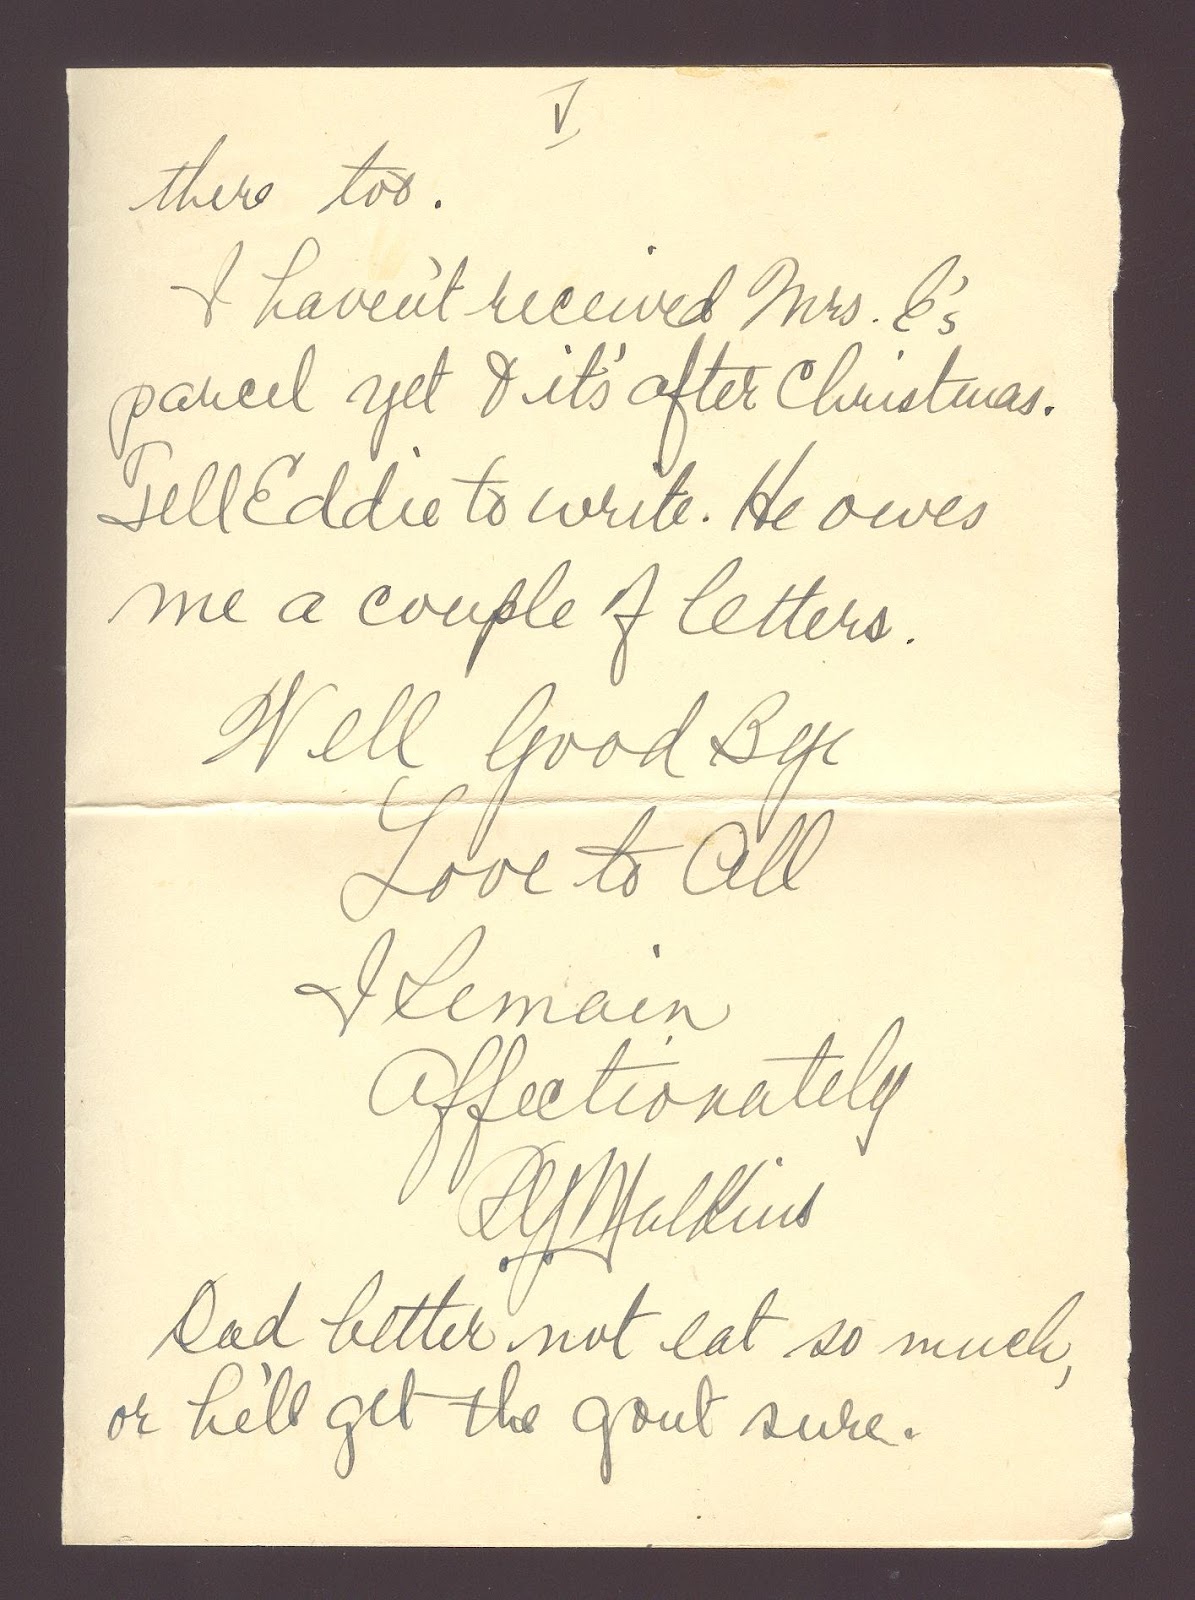 V
there too.
I haven't received Mrs. E's
parcel yet & it's after Christmas.
Tell Eddie to write. He owes
me a couple of letters.
Well Good Bye
Love to All
I Remain
Affectionately
Dad better not eat so much,
or he'll get the gout sure.